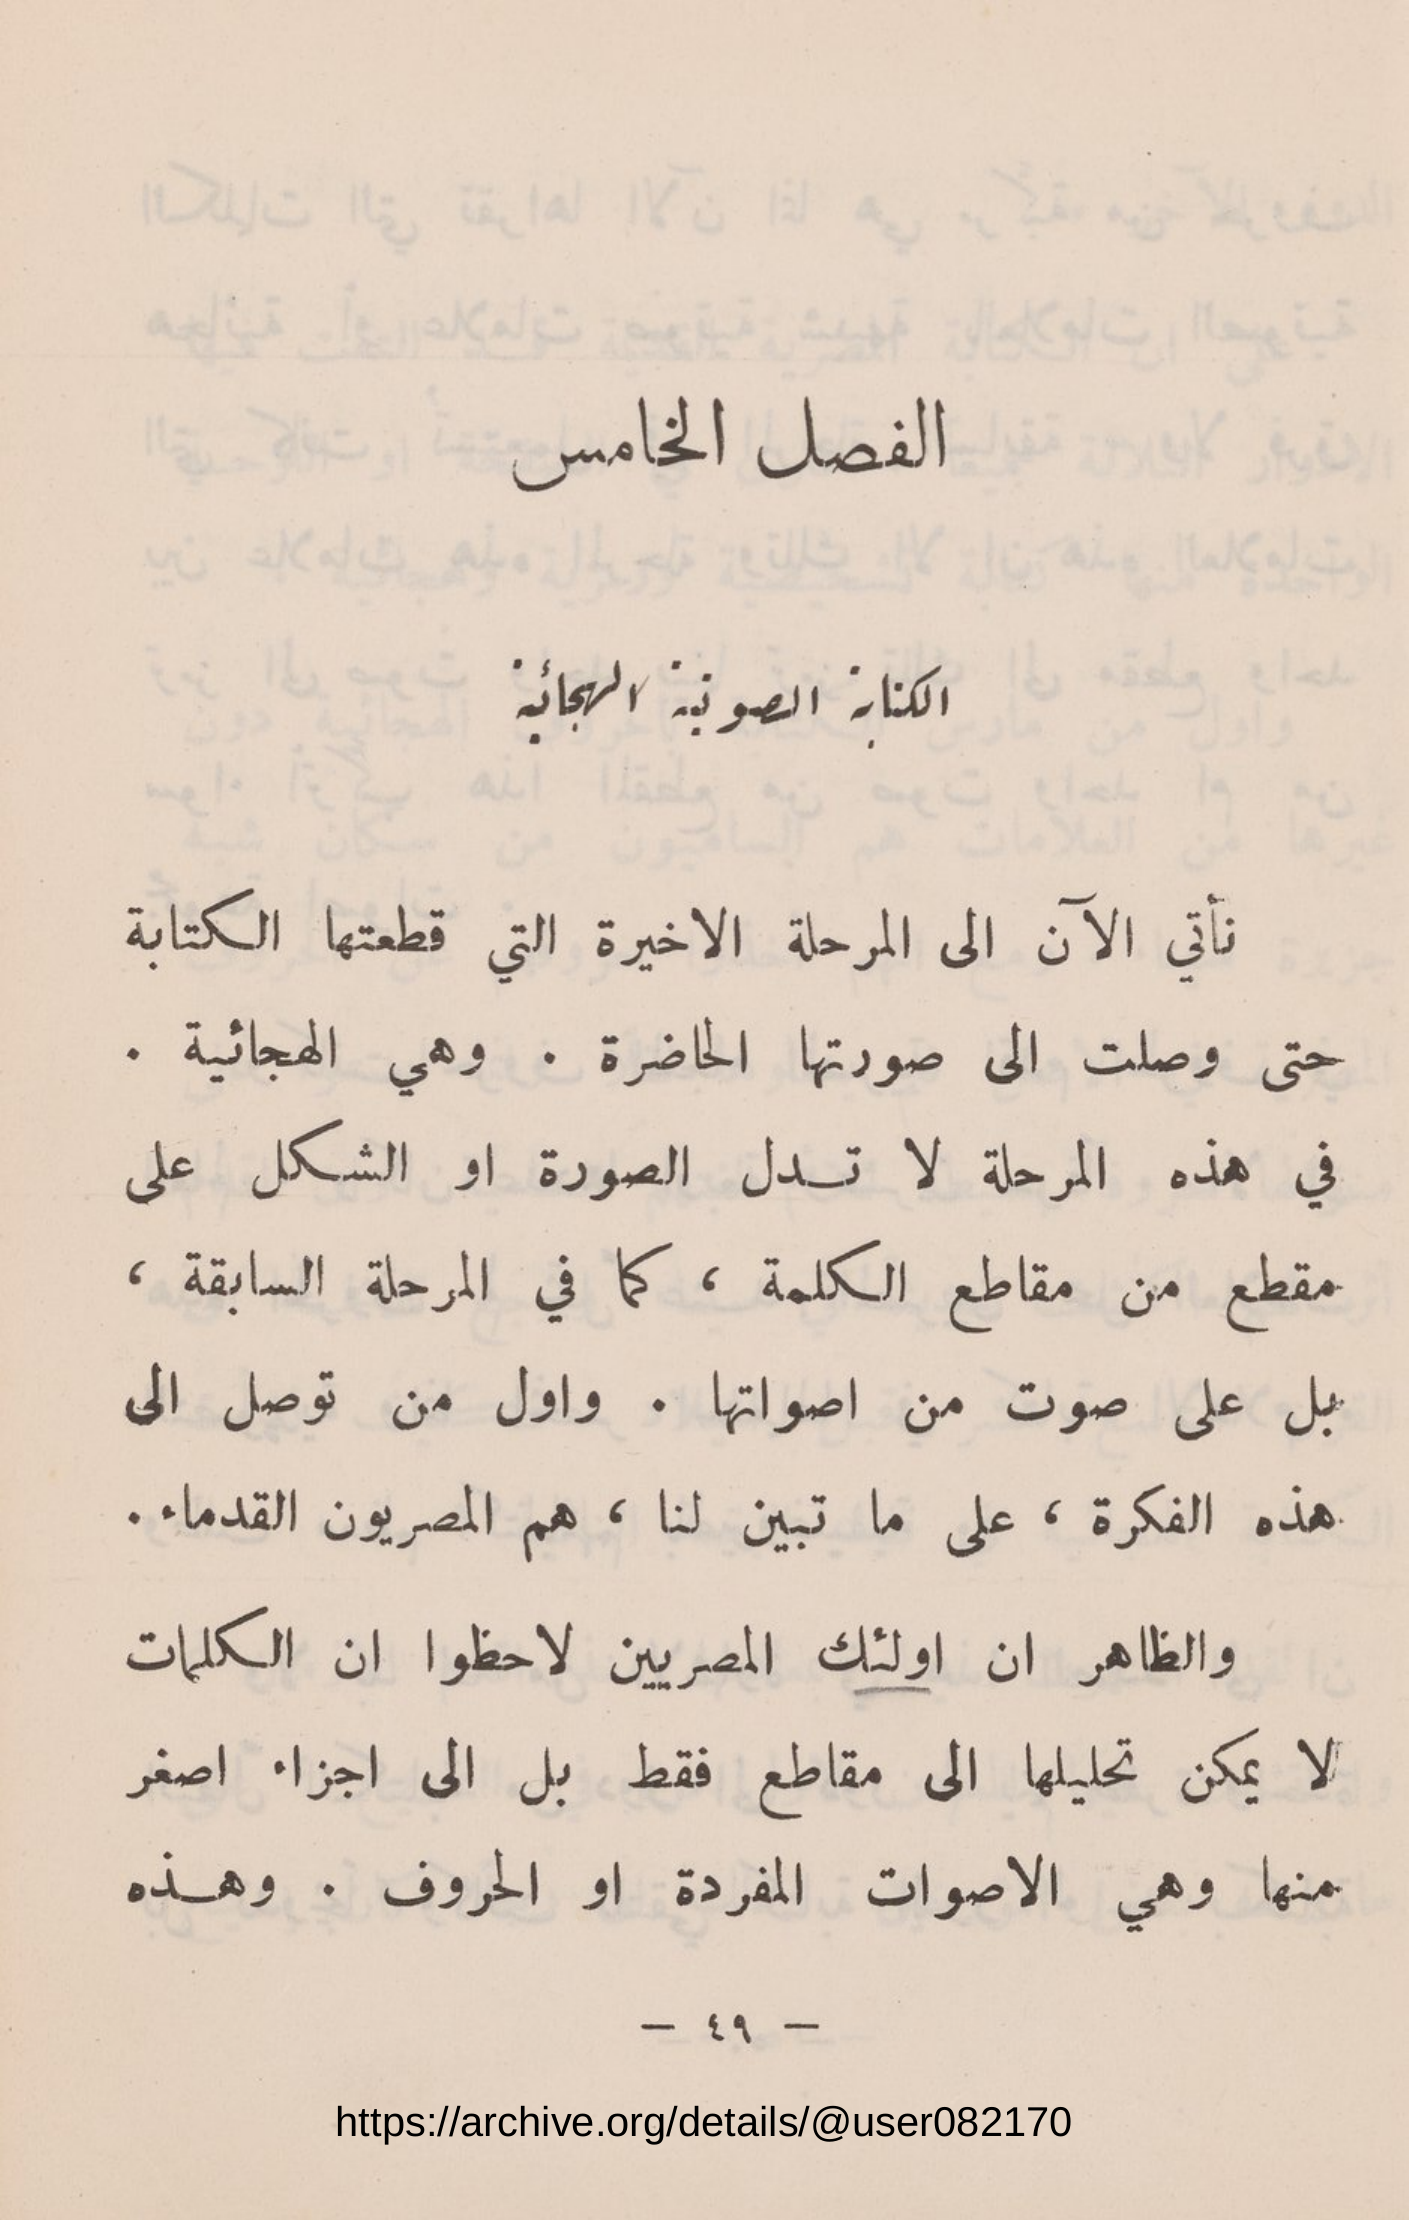 الفصل الخامس
الكتابة الصوتية الهجائية
نأتي الآن الى المرحلة الاخيرة التي قطعتها الكتابة
حتى وصلت الى صورتها الحاضرة . وهي الهجائية .
في هذه المرحلة لا تـدل الصورة او الشكل على
مقطع من مقاطع الكلمة ، كما في المرحلة السابقة ،
بل على صوت من اصواتها . واول من توصل الى
هذه الفكرة ، على ما تبين لنا ، هم المصريون القدماء .
والظاهر ان اولئك المصريين لاحظوا ان الكلمات
لا يمكن تحليلها الى مقاطع فقط بل الى اجزاء اصغر
منها وهي الاصوات المفردة او الحروف . وهـذه
— ٤٩ —
https://archive.org/details/@user082170